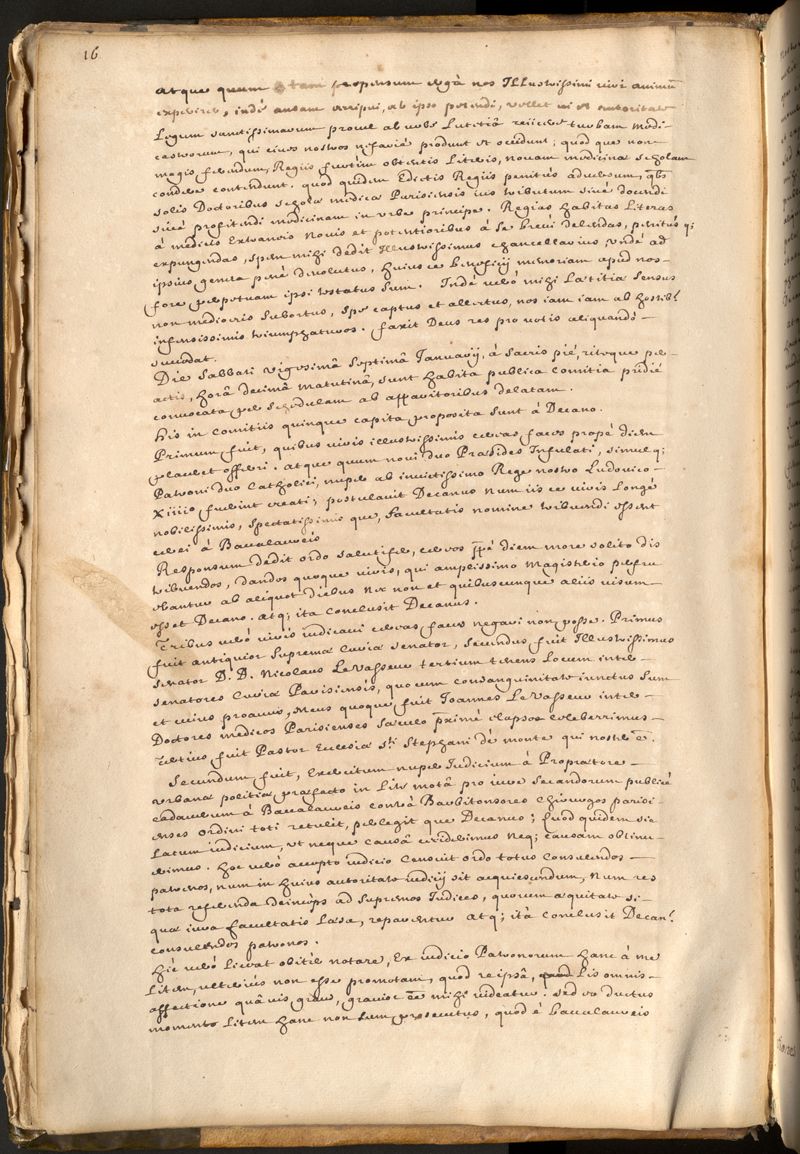 16
atque quum tam propensum ergà nos Illustrissimi viri animū
experirer, indè ansam arripui, ab ipso petendi, vellet ut autoritate
Legum sanctissimarum procul ab urbe Lutetiâ reiicere turbam medi-
castrorum, qui cives nostros nefariè produnt et occidunt; quod que non
magis ferendum, Regiis furtìm obtentis Literis, novam medicinæ scholam
condere contendunt. quod quidem Edictis Regiis penitùs adversum, qbs
solis Doctoribus scholæ medicæ Parisiensis ius tributum sivè docendi
sivè profitendi medicinam in urbe principe. Regias habitas Literas
à medicis Extraneis Novis et potentioribus à se brevi delendas, penitùs q;
expungendas, spem mihi dedit Illustrissimus chancellarius undè ad
ipsius genua penè devolutus, huiusce beneficij memoriam apud nos
fore perpetuam ipsi testatus sum. Indè verò mihi Lætitiæ sensus
non mediocris subortus, spe captus et allectus, nos iam iam ab hostib'
infensissimis triumphaturos. faxit Deus res pro votis aliquandò
succedat.
Die sabbati vigesimâ septimâ Januarij, à sacris piè, ritèque per-
actis, horâ decimâ matutinâ, sunt habita publica comitia pridiè
convocata per schedulam ab apparitoribus delatam.
His in comitiis quinque capita proposita sunt à Decano.
Primum fuit, quibus viris illustrissimis cereas faces propè diem
placeret offerri. atque quum novi duo Præsides Infulati, simul q;
Patroni duo Catholici, nuper ab invictissimo Rege nostro Ludovico
xiiiio fuerint creati; postulavit Decanus num iis ce viris Longè
nobilissimis, spectatissimis que, facultatis nomine tribuendi essent
cerei à Baccalaureis
Responsum dedit ordo salutifer, cereos ppè diem more solito dis
tribuendos, dandos quoque viris, qui amplissimo magisterio perfru
ebantur ab aliquot diebus nec non et quibuscunque aliis visum
esset Decano. atq; ita conclusit Decanus.
Tribus verò viris iudicavi cereas faces negari non posse. Primus
fuit antiquior supremæ curiæ senator, secundus fuit Illustrissimus
senator D. D. Nicolaus Le Vasseur tertium tenens Locum inter
senatores curiæ Parisiensis, quocum consanguinitate iunctus sum
et cuius proavus, meus quoque fuit Joannes Le Vasseur inter
Doctores medicos Parisienses sæculo proximè elapso celeberrimus
Tertius fuit Pastor Ecclesiæ sti Stephani de monte qui noster e.
Secundum fuit, Exercitum nuper Iudicium à Proprætore
urbanæ politiæ, præfecto in Lite motâ pro iure secandorum publicè
cadaverum à Baccalaureis contrà Barbitonsores chirurgos parisi-
enses ordini toti retulit, perlegit que Decanus; quod quidem sic
Latum iudicium, ut neque causâ cecidimus neq; causam obtinu-
erimus. hoc verò accepto iudicio censuit ordo totus consulendos
patronos, num in huius autoritate iudicij sit acquiescendum, num res
tota referenda deinceps ad supremos Iudices, quorum æquitate si-
qua iura facultatis Læsa, reparentur atq; ità conclusit Decan'
consulendos patronos.
Hic verò Liceat obiter notare, Ex iudicio Patronorum hanc à me
Litem, ulteriùs non esse promotam, quod reipsâ, Lis omnis
affectione quâvis gravi, gravior ee mihi videatur. sed eo ductus
momento Litem hanc non sum prosecutus, quod è baccalaureis